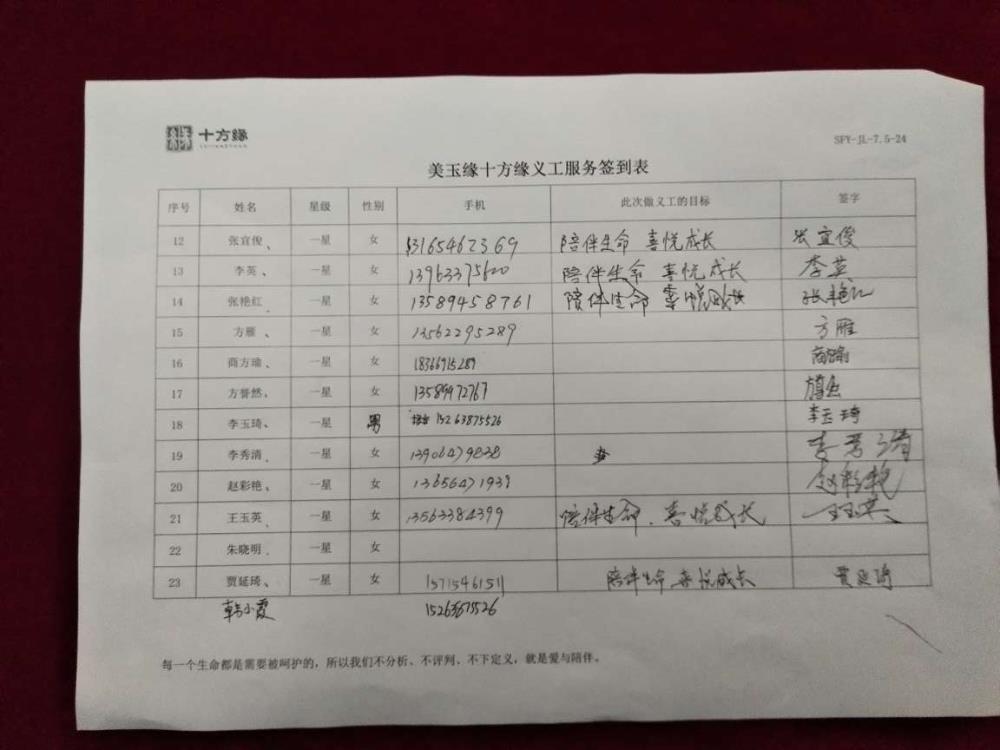 十方缘
SFY-JL-7.5-24
美玉缘十方缘义工服务签到表
序号 姓名 星级 性别 手机 此次做义工的目标 签字
12 张宜俊、 一星 女 13165462369 陪伴生命 喜悦成长 张宜俊
13 李英、 一星 女 13963375600 陪伴生命 喜悦成长 李英
14 张艳红、 一星 女 13589458761 陪伴生命 喜悦成长 张艳红
15 方雁、 一星 女 13562295289 方雁
16 商方瑜、 一星 女 18366915289
17 方誉然、 一星 女 13589972767
18 李玉琦、 一星 男 15263875526 李玉琦
19 李秀清、 一星 女 13906479838 李秀清
20 赵彩艳、 一星 女 13656471939 赵彩艳
21 王玉英、 一星 女 13563384399 陪伴生命、喜悦成长 王玉英
22 朱晓明、 一星 女
23 贾延琦、 一星 女 15715461511 陪伴生命 喜悦成长 贾延琦
韩小霞
每一个生命都是需要被呵护的，所以我们不分析、不评判、不下定义，就是爱与陪伴。